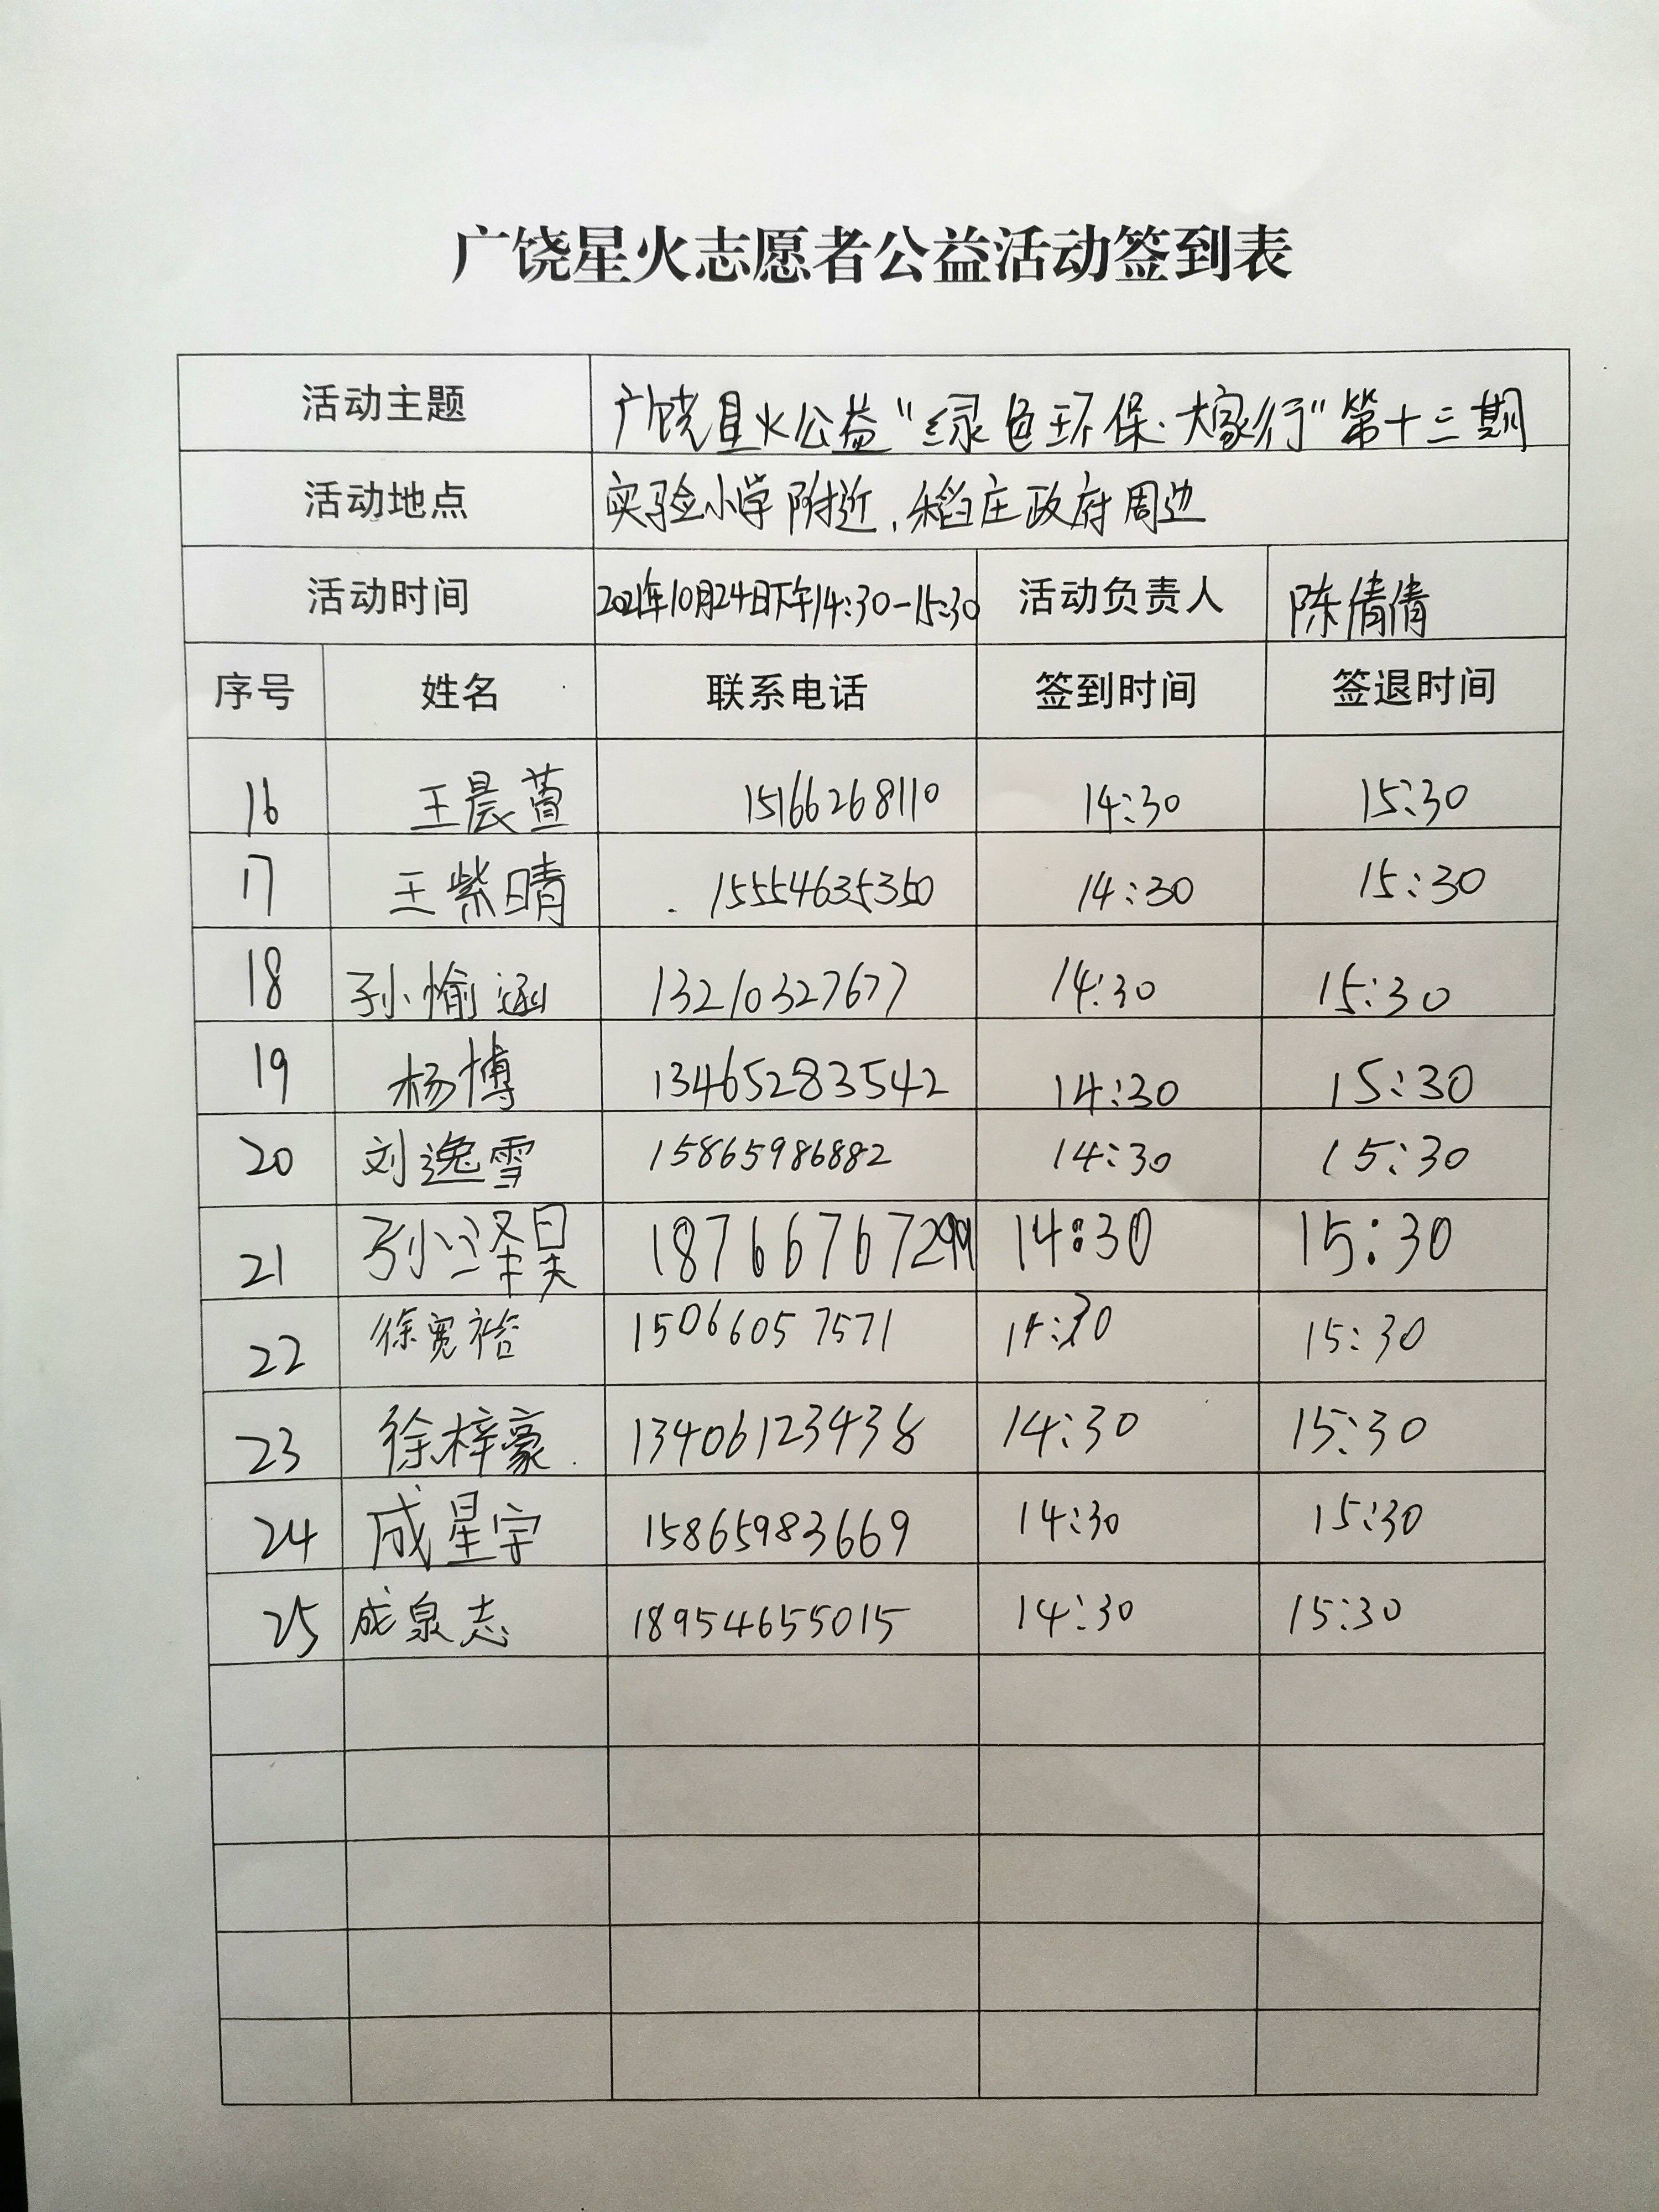 广饶星火志愿者公益活动签到表
活动主题 广饶星火公益“绿色环保·大家行”第十三期
活动地点 实验小学附近，稻庄政府周边
活动时间 2021年10月24日下午14:30-15:30 活动负责人 陈倩倩
序号 姓名 联系电话 签到时间 签退时间
16 王晨萱 15166268110 14:30 15:30
17 王紫晴 15554635350 14:30 15:30
18 孙愉涵 13210327677 14:30 15:30
19 杨博 13465283542 14:30 15:30
20 刘逸雪 15865986882 14:30 15:30
21 孙泽昊 18766767299 14:30 15:30
22 徐宽裕 15066057571 14:30 15:30
23 徐梓豪 13406123438 14:30 15:30
24 成星宇 15865983669 14:30 15:30
25 成泉志 18954655015 14:30 15:30